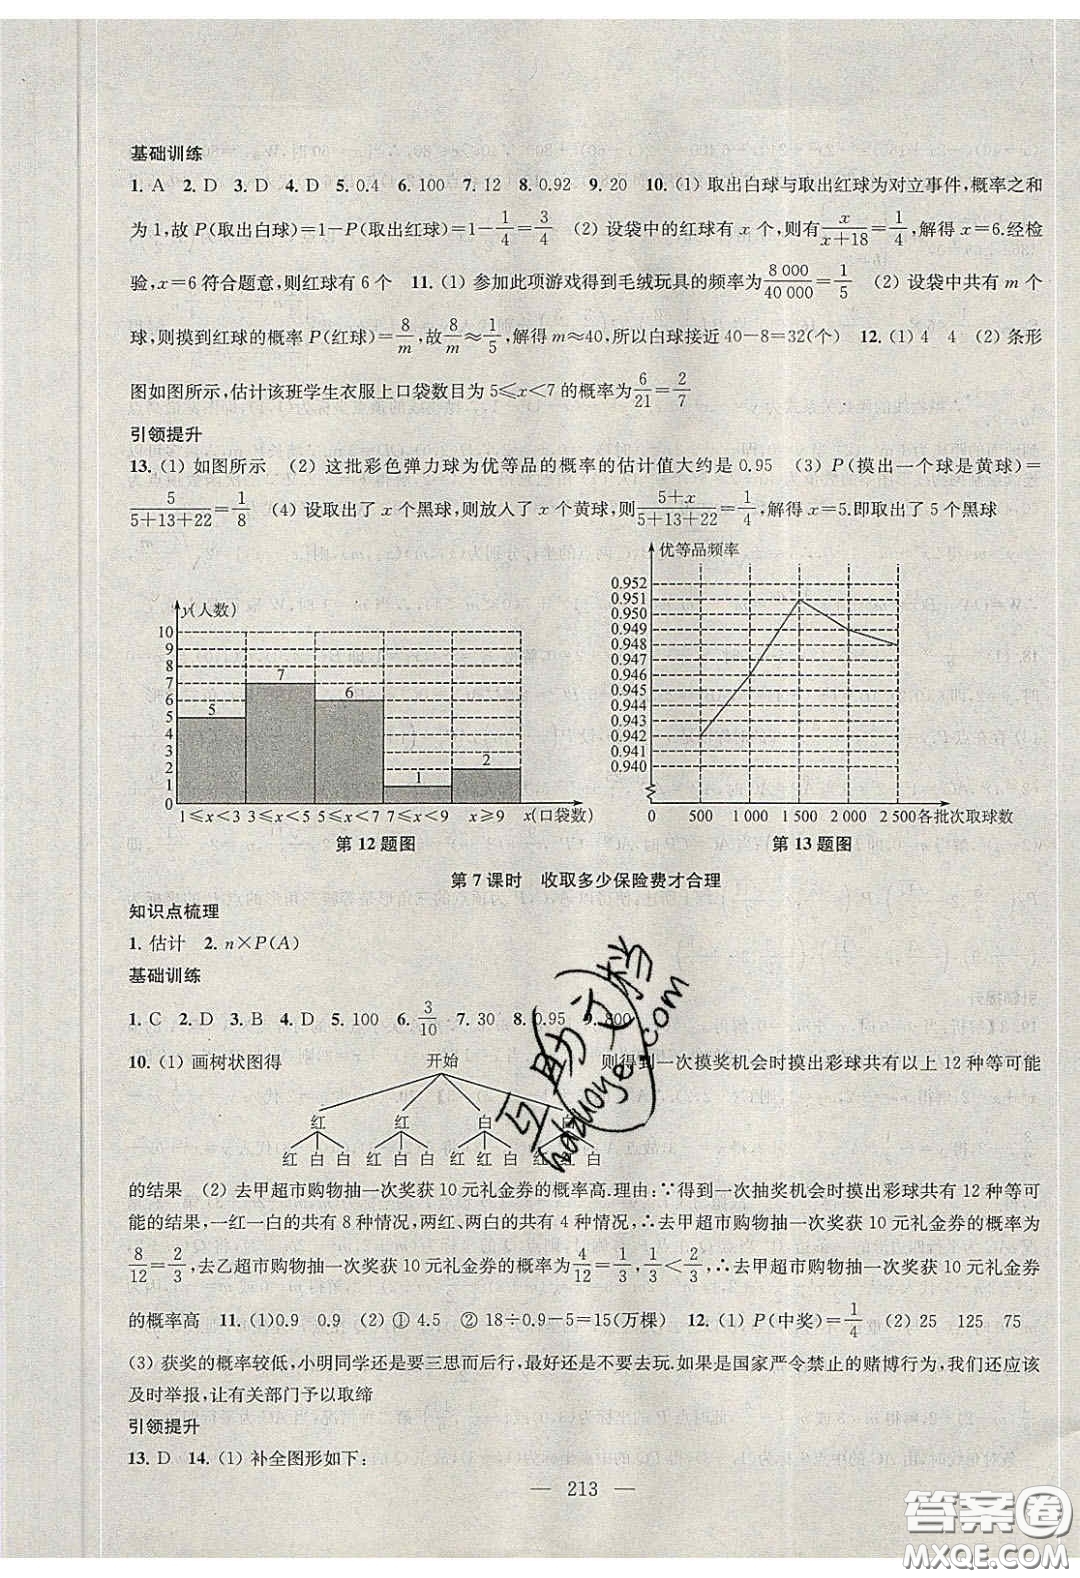 基础训练
1. A 2. D 3. D 4. D 5. 0.4 6. 100 7. 12 8. 0.92 9. 20 10. (1) 取出白球与取出红球为对立事件,概率之和
为1,故 P(取出白球)=1-P(取出红球)=1-1/4=3/4 (2) 设袋中的红球有 x 个,则有x/(x+18)=1/4,解得 x=6.经检
验,x=6符合题意,则红球有 6 个 11. (1) 参加此项游戏得到毛绒玩具的频率为8 000/40 000=1/5 (2) 设袋中共有 m 个
球,则摸到红球的概率 P(红球)=8/m,故8/m≈1/5,解得 m≈40,所以白球接近 40-8=32(个) 12. (1) 4 4 (2) 条形
图如图所示,估计该班学生衣服上口袋数目为 5≤x<7 的概率为6/21=2/7
引领提升
13. (1) 如图所示 (2) 这批彩色弹力球为优等品的概率的估计值大约是 0.95 (3) P(摸出一个球是黄球)=
5/(5+13+22)=1/8 (4) 设取出了 x 个黑球,则放入了 x 个黄球,则(5+x)/(5+13+22)=1/4,解得 x=5.即取出了 5 个黑球
y(人数)
10
9
8
7
6
5
4
3
2
1
0
5 7 6 1 2
1≤x<3 3≤x<5 5≤x<7 7≤x<9 x≥9 x(口袋数)
第12题图
优等品频率
0.952
0.951
0.949
0.948
0.947
0.946
0.945
0.944
0.943
0.942
0.941
0.940
0 500 1 000 1 500 2 000 2 500 各批次取球数
第13题图
第 7 课时 收取多少保险费才合理
知识点梳理
1. 估计 2. n×P(A)
基础训练
1. C 2. D 3. B 4. D 5. 100 6. 3/10 7. 30 8. 0.95 9. 800
10. (1) 画树状图得 开始 则得到一次摸奖机会时摸出彩球共有以上 12 种等可能
红 红 白 白
红 白 白 红 白 白 红 红 白 红 红 白
的结果 (2) 去甲超市购物抽一次奖获 10 元礼金券的概率高.理由:∵得到一次抽奖机会时摸出彩球共有 12 种等可
能的结果,一红一白的共有 8 种情况,两红、两白的共有 4 种情况,∴去甲超市购物抽一次奖获 10 元礼金券的概率为
8/12=2/3,去乙超市购物抽一次奖获 10 元礼金券的概率为4/12=1/3,1/3<2/3,∴去甲超市购物抽一次奖获 10 元礼金券
的概率高 11. (1)0.9 0.9 (2) ① 4.5 ② 18÷0.9-5=15(万棵) 12. (1) P(中奖)=1/4 (2) 25 125 75
(3) 获奖的概率较低,小明同学还是要三思而后行,最好还是不要去玩.如果是国家严令禁止的赌博行为,我们还应该
及时举报,让有关部门予以取缔
引领提升
13. D 14. (1) 补全图形如下:
— 213 —
互助文档
hdzuoye.com
答案圈
MXQE.COM